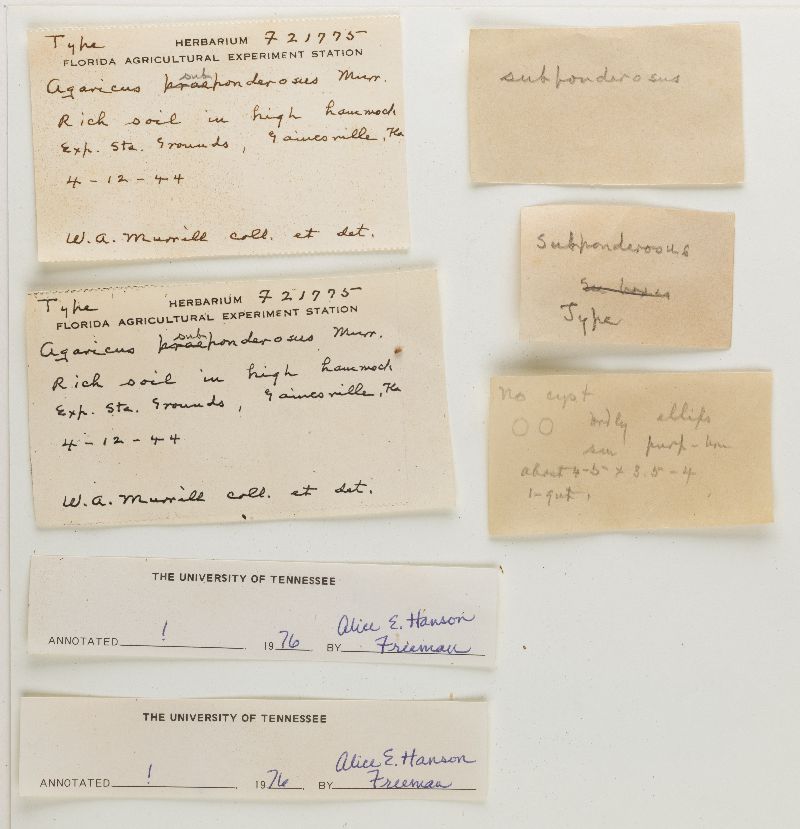 Type HERBARIUM F21775
FLORIDA AGRICULTURAL EXPERIMENT STATION
sub
Agaricus praeponderosus Murr.
Rich soil in high hammock
Exp. Sta. Grounds, Gainesville, Fla
4-12-44
W.A. Murrill coll. et det.
Type HERBARIUM F21775
FLORIDA AGRICULTURAL EXPERIMENT STATION
sub
Agaricus praeponderosus Murr.
Rich soil in high hammock
Exp. Sta. Grounds, Gainesville, Fla
4-12-44
W.A. Murrill coll. et det.
THE UNIVERSITY OF TENNESSEE
Alice E. Hanson
ANNOTATED ! 1976 BY Freeman
THE UNIVERSITY OF TENNESSEE
Alice E. Hanson
ANNOTATED ! 1976 BY Freeman
subponderosus
Subponderosus
Type
No cyst
brdly ellips
sm purp-brn
about 4-5 x 3.5-4
1-gut.